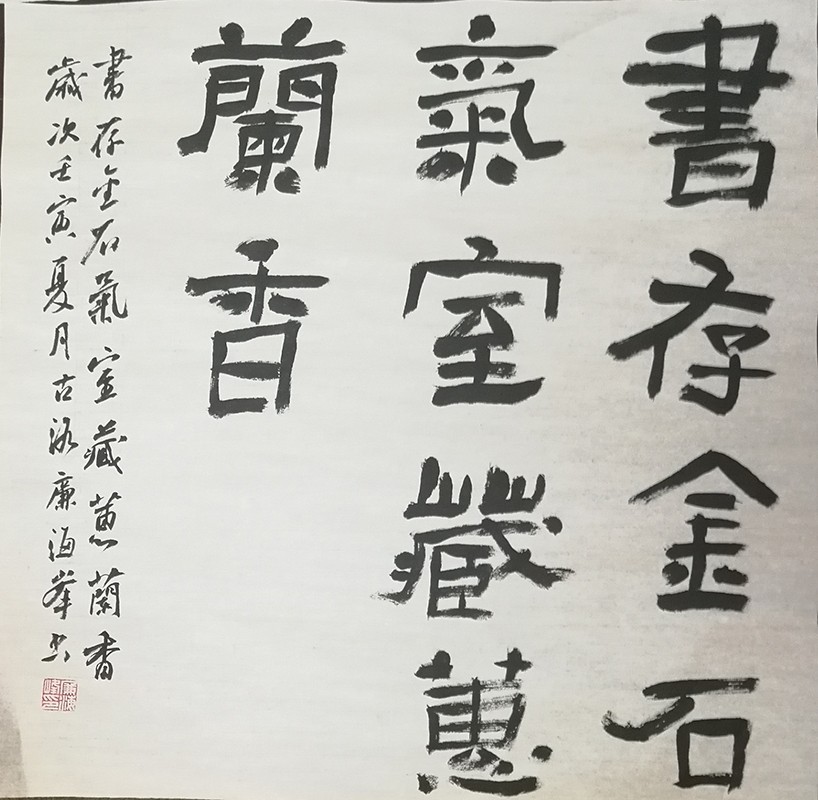 書存金石
氣室藏蕙
蘭香
書存金石氣室藏蕙蘭香
歲次壬寅夏月古洺廉海峯书